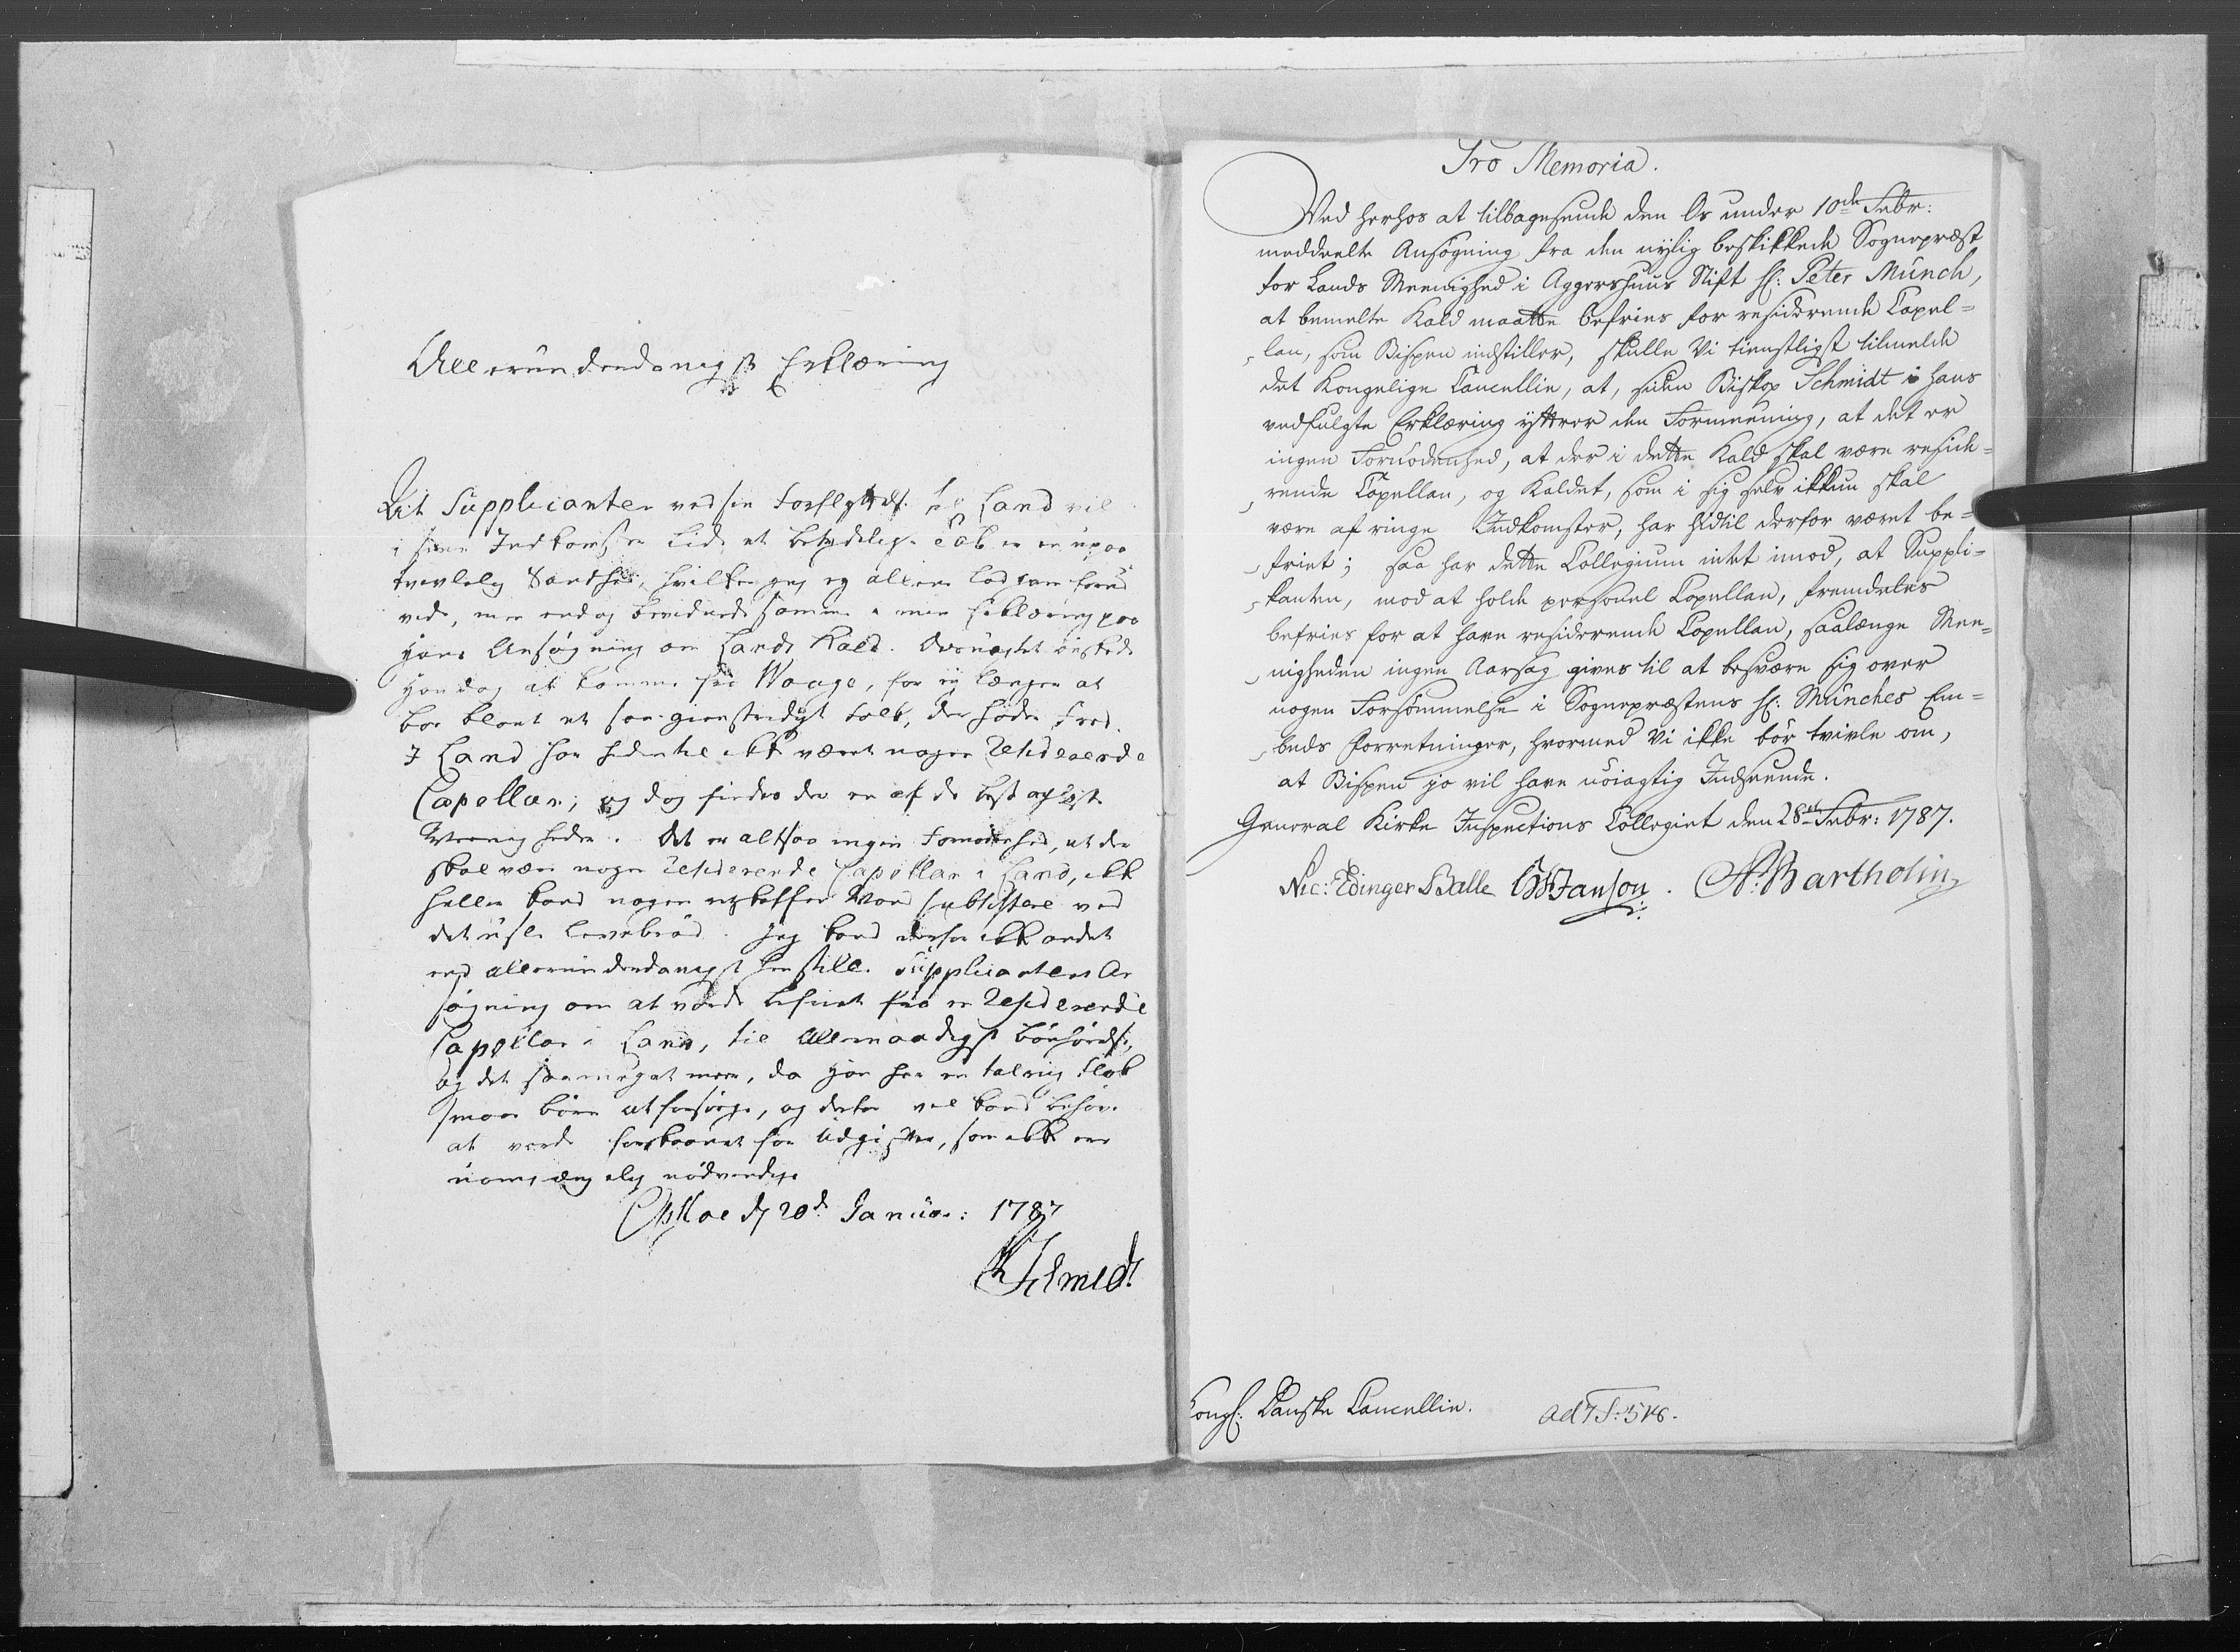 Allerunderdanigst Erklæring
At Supplicanten ved sin Forflyttelse til Land vil
i sine Indkomster lide et betydelig Tab er en upaa
tvivlelig Sandhed, hvilken jeg og allene lod ham forud
vide, men endog bevidnede samme i min Erklæring paa
Hans Ansøgning om Lands Kald. Desuagtet ønskede
Han dog at komme fra Waage, for ej længer at
boe blant et saa gienstridigt Folk, der høde Fred.
I Land har hidentil ikke været nogen Residerende
Capellan; og dog findes der en af de best oplyste
Menigheder. Det er altsaa ingen Fornødenhed, at der
skal være nogen Residerende Capellan i Land, ikke
heller kand nogen retskaffen Mand subsistere ved
det usle Levebrød. Jeg kand derfor ikke andet
end allerunderdanigst henstille Supplicantens An
søgning om at vorde befriet fra en Residerende
Capellan i Land, til Allernaadigst Bønhørelse,
og det saameget mere, da Han har en talrig Flok
smaae Børn at forsørge, og derfor vel kand behøve
at vorde forskaanet for Udgifter, som ikke ere
uomgængelig nødvendige
Opsloe d 20de Januar: 1787
Schmidt
Pro Memoria.
Ved herhos at tilbagesende den Os under 10de Febr:
meddeelte Ansøgning fra den nylig beskikkede Sognepræst
for Lands Meenighed i Aggershuus Stift Hr: Peter Münch,
at bemelte Kald maatte befries for residerende Capel=
lan, som Bispen indstiller, skulle Vi tienstligst tilmelde
det Kongelige Cancellie, at, siden Biskop Schmidt i hans
vedfulgte Erklæring yttrer den Formeening, at det er
ingen Fornødenhed, at der i dette Kald skal være reside=
rende Capellan, og Kaldet, som i sig selv ikkun skal
være af ringe Indkomster, har hidtil derfor været be=
friet; saa har dette Collegium intet imod, at Suppli=
kanten, mod at holde personel Capellan, fremdeles
befries for at have residerende Capellan, saalænge Mee=
nigheden ingen Aarsag gives til at besvære sig over
nogen Forsømmelse i Sognepræstens Hr: Münches Em=
beds Forretninger, hvormed Vi ikke bør tvivle om,
at Bispen jo vil have nøiagtig Indseende.
General Kirke Inspections Collegiet den 28de Febr: 1787.
Nic: Edinger Balle Janson. Bartholin
Kongl: Danske Cancellie. ad